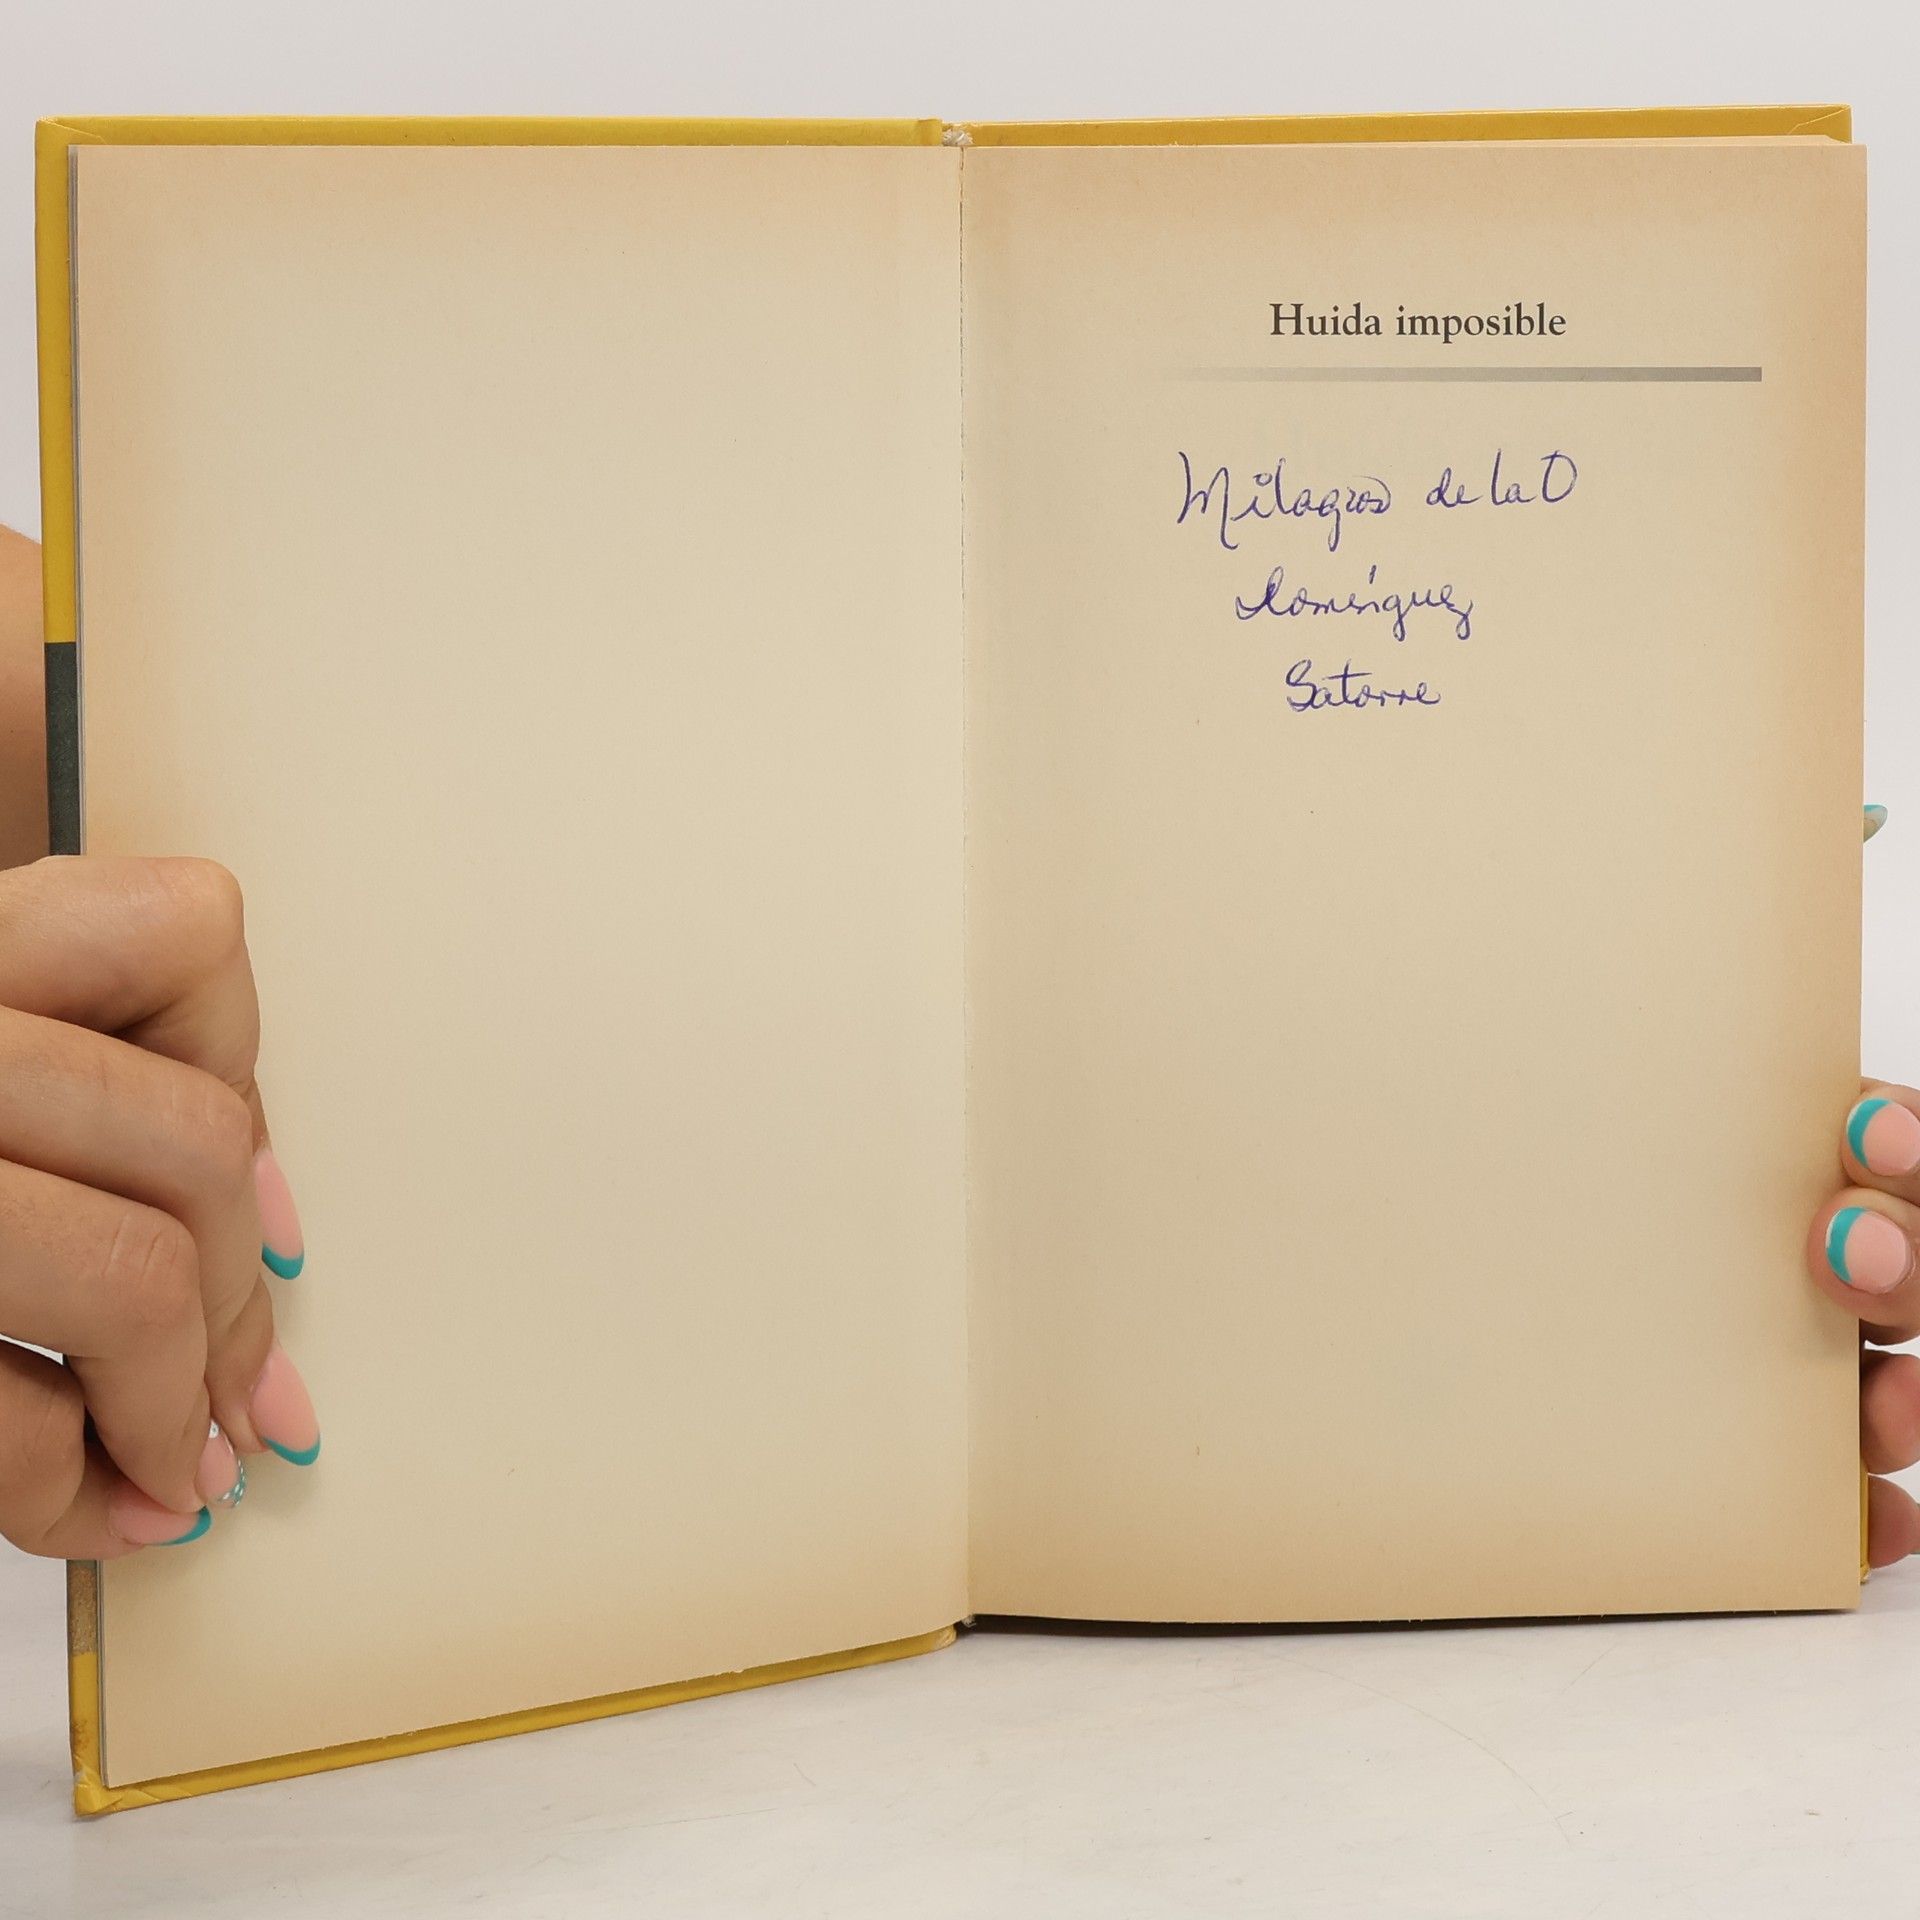 Huida imposible
Milagros de la O
Domínguez
Satorre